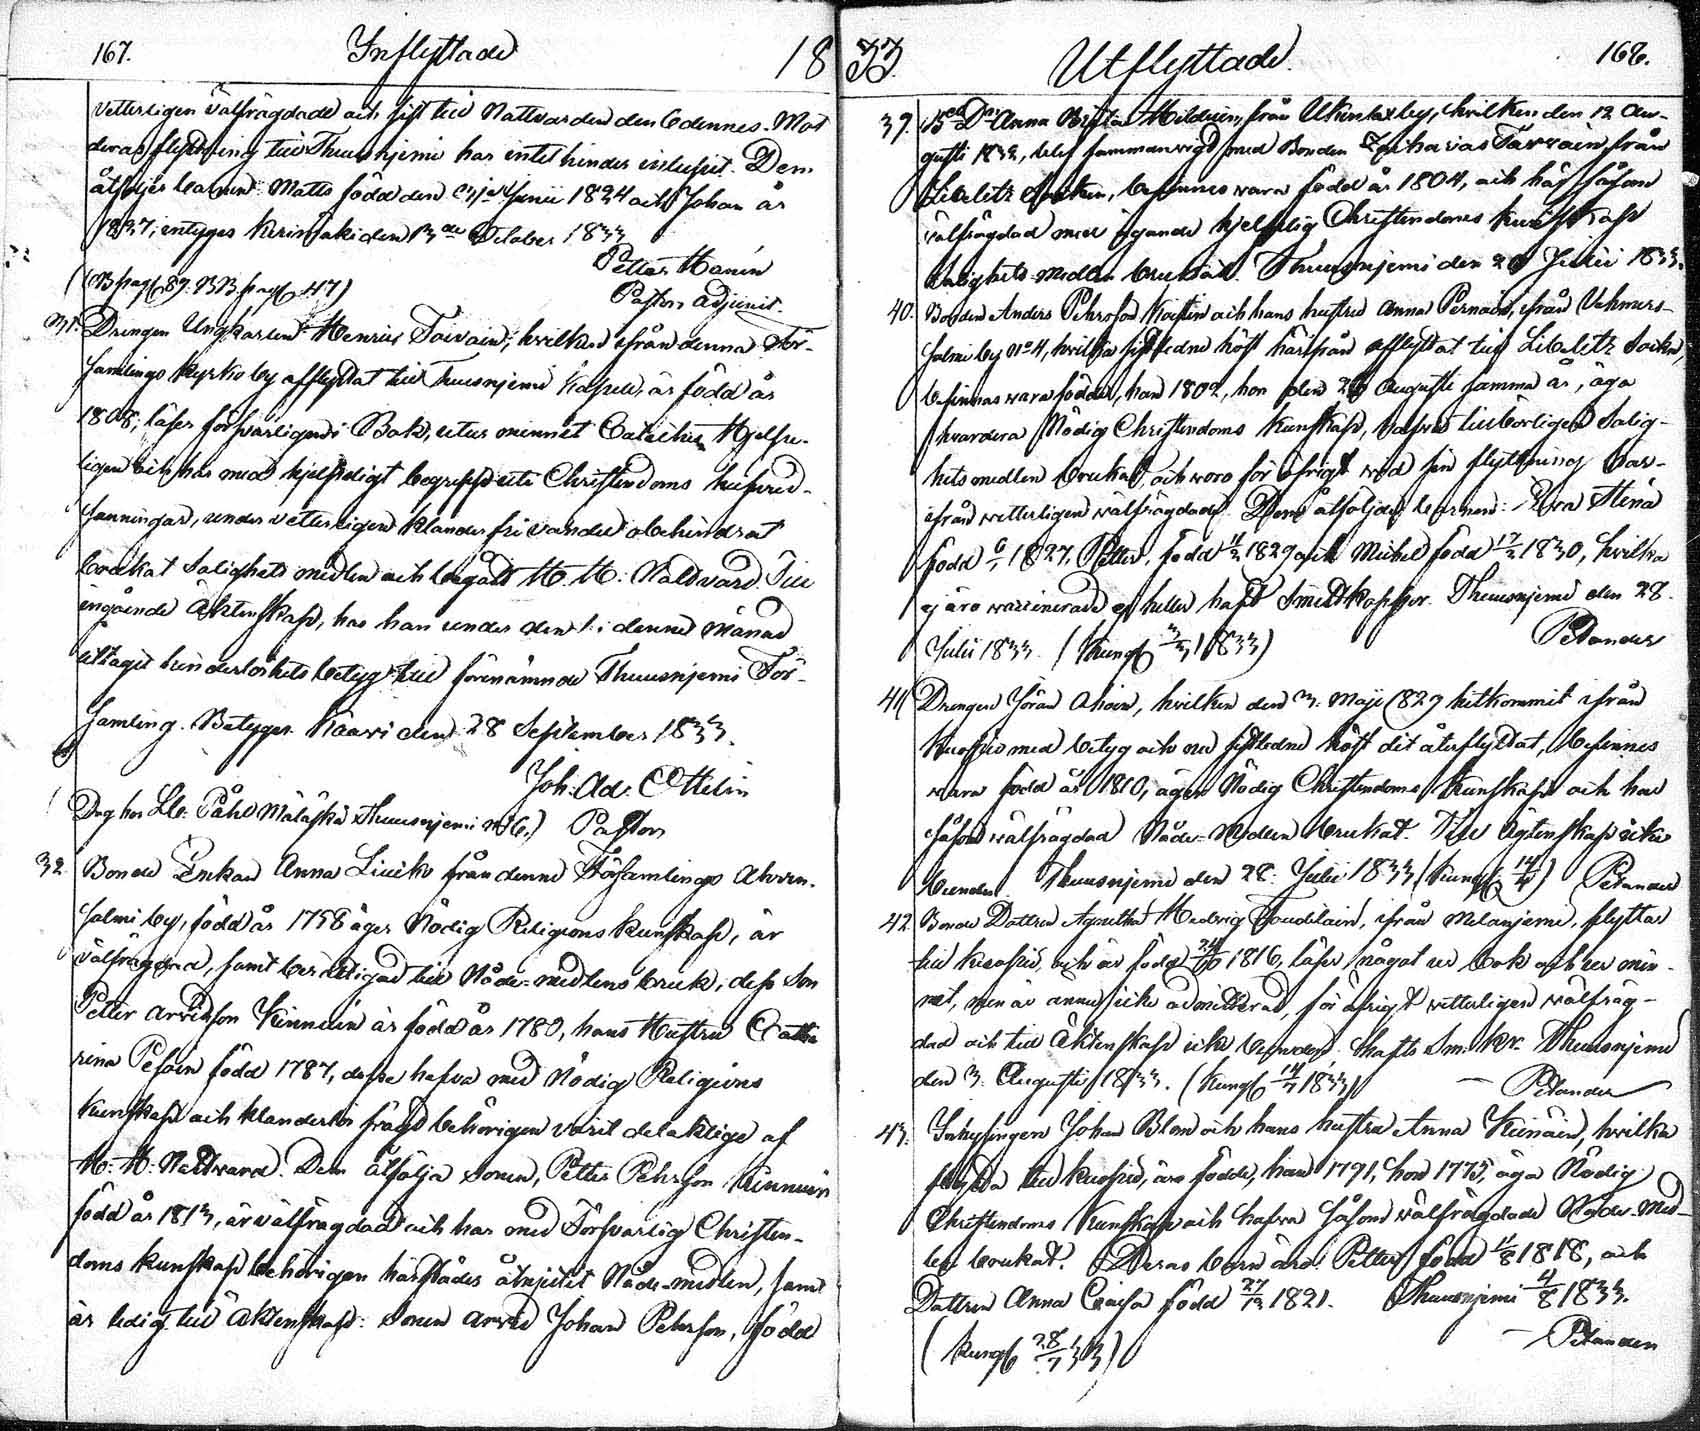 167. Inflyttade 18
vetterligen välfrägdade och sist till Nattvarden den 6 dennes. Mot
deras flyttning till Thuusnjemi har intet hinder influtit. Dem
åtföljer barnen: Matts född den Junii 1824 och Johan år
1827, intyges Kerimäki den 13de October 1833
Petter Hanén
Pastors adjunct.
31. Drengen Ungkarlen Henric Toivain, hvilken ifrån denna För-
samlings Kyrkoby afflyttat till Thuusnjemi Kapell, är född år
1808, läser försvarligen i Bok, utur minnet Catechis hjelpe-
ligen och har med hjelpeligt begrepp uti Christendoms hufvud-
sanningar, under vetterligen klanderfri vandel obehindrat
brukat Salighets medlen och begått H. H. Nattvard. Till
ingående Äktenskap, har han under den 1: i denne månad
uttagit hinderlöshets betyg till förenämnde Thuusnjemi För-
samling. Betyger. Kaavi den 28 September 1833.
Joh: Ad: Ottelin
Pastor
Drg hos Påhl Mäläskä Thuusnjemi N 6.)
32. Bonde Enkan Anna Liucko från denne Församlings Ahven-
salmi by, född år 1758 äger Nödig Religions kunskap, är
välfrägdad, samt berättigad till Nåde-medlens bruk, dess Son
Petter Arvidson Kinnuin är född år 1780, hans Hustru Catha
rina Pesoin född 1787, dessa hafva med Nödig Religions
kunskap och klanderlös frägd behörigen varit delaktige af
H. H. Nattvard. Dem åtfölja Sonen, Petter Pehrson Kinnuin
född år 1813, är välfrägdad och har med Försvarlig Christen-
doms kunskap behörigen härstädes åtnjutit Nåde-medlen, samt
är ledig till Äktenskap: Sonen Arvid Johan Pehrson, född
33 Utflyttade. 168.
39. Anna Kristina Hilduin, från by, hvilken den 12 Au-
gusti 1832, blef sammanvigd med Bonden Zacharias Tarvain från
Libelitz Socken, befinnes vara född år 1804, och har såsom
välfrägdad med ägande hjelplig Christendoms kunskap
Salighets-medlen brukat. Thuusnjemi den 28 Julii 1833.
40. Bonden Anders Pehrson och hans hustru Anna Pernain, ifrån Vehmers-
salmi by N:o 4, hvilka sistledne höst härifrån afflyttat till Libelitz Sockn,
befinnas vara födde, han 1802, hon den 28 Augusti samma år, äga
hvardera Nödig Christendoms kunskap, hafva tillbörligen Salig-
hets medlen brukat, och voro för öfrigt wid sin flyttning här-
ifrån vetterligen välfrägdade. Dem åtföljde barnen: Eva Stina
född 1827, Petter, född 1829 och Michel född 1830, hvilka
ej äro vaccinerade ej heller haft Smittkoppor. Thuusnjemi den 28.
Julii 1833. Petander
41. Drengen Jöran Ahoin, hvilken den 3. Maji 1829 hitkommit ifrån
Kuopio med betyg och nu sistledne höst dit återflyttat, befinnes
vara född år 1810, äger Nödig Christendoms kunskap och har
såsom välfrägdad Nåde-Medlen brukat. Till Ägtenskap icke
bunden. Thuusnjemi den 28. Julii 1833 Petander
42. Bonde Dottren Agnetha Hedvig Toudilain, ifrån Melanjemi, flyttar
till Kuopio, och är född 1816, läser något ur bok och ur min-
net, men är ännu icke admitterad, för öfrigt vetterligen välfräg-
dad och till Äktenskap icke bunden. Thuusnjemi
den 3. Augusti 1833. Petander
43. Inhysingen Johan Blom och hans hustru Anna Keinäin, hvilka
flytta till Kuopio, äro födde, han 1791, hon 1775, äga Nödig
Christendoms kunskap och hafva såsom välfrägdade Nåde-Med-
len brukat. Deras barn äro: Petter född 11/8 1818, och
Dottren Anna Caisa född 1821. Thuusnjemi 4/8 1833.
Petander